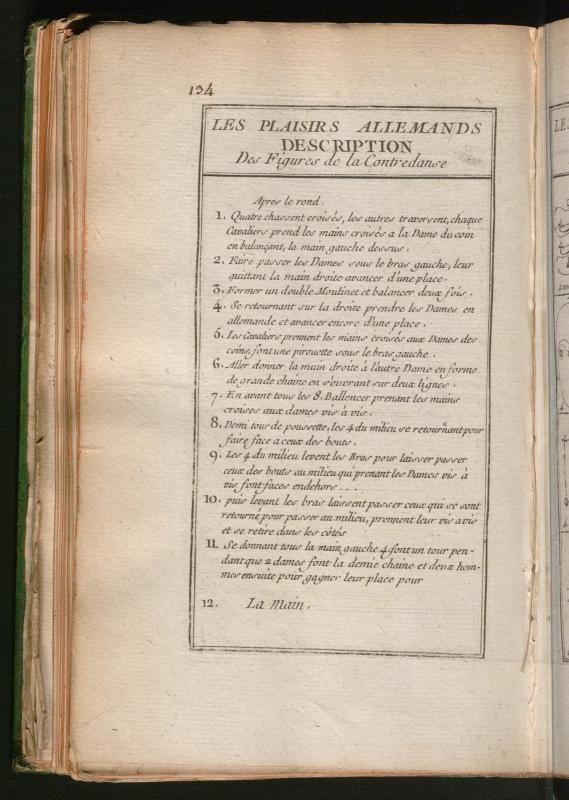 134
LES PLAISIRS ALLEMANDS
DESCRIPTION
Des Figures de la Contredanse
Apres le rond.
1. Quatre chassent croisés, les autres traversent, chaque
Cavaliers prend les mains croisés a la Dame du coin
en balançant, la main gauche dessus.
2. Faire passer les Dames sous le bras gauche, leur
quittant la main droite avancer d'une place.
3. Former un double Moulinet et balancer deux fois.
4. Se retournant sur la droite prendre les Dames en
allemande et avancer encore d'une place.
5. Les Cavaliers prennent les mains croisés aux Dames des
coins, font une pirouette sous le bras gauche.
6. Aller donner la main droite à l'autre Dame en forme
de grande chaine en s'ouvrant sur deux lignes.
7. En avant tous les 8. Ballencer prenant les mains
croises aux dames vis à vis.
8. Demi tour de poussette, les 4 du milieu se retournant pour
faire face a ceux des bouts.
9. Les 4 du milieu levent les Bras pour laisser passer
ceux des bouts au milieu qui prenant les Dames vis à
vis font faces endehors
10. puis levant les bras laissent passer ceux qui se sont
retourné pour passer au milieu, prennent leur vis a vis
et se retire dans les côtés
11. Se donnant tous la main gauche 4 font un tour pen-
dant que 2 dames font la demie chaine et deux hom-
mes ensuite pour gagner leur place pour
12. La Main.
LES